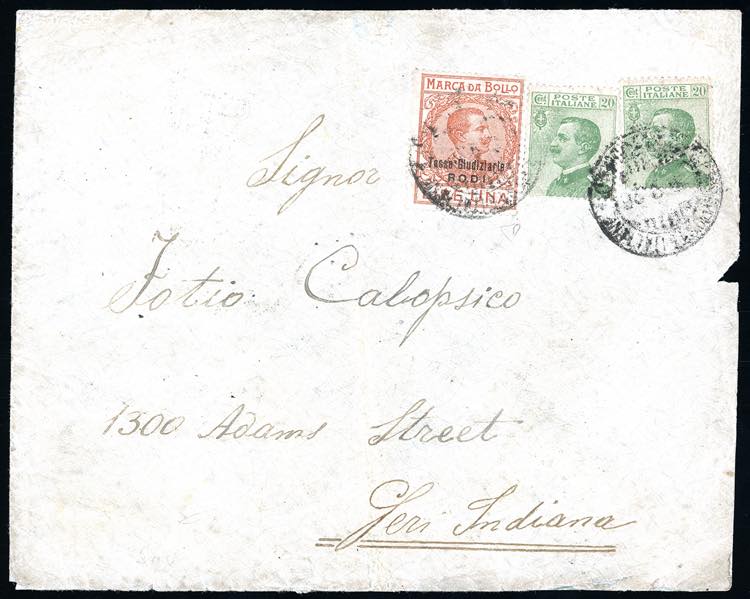 MARCA DA BOLLO
Tasse Giudiziarie
RODI
UNA
Cent 20
POSTE
ITALIANE
Cent 20
POSTE
ITALIANE
Signor
Fotio Calopsico
1300 Adams Street
Geri Indiana